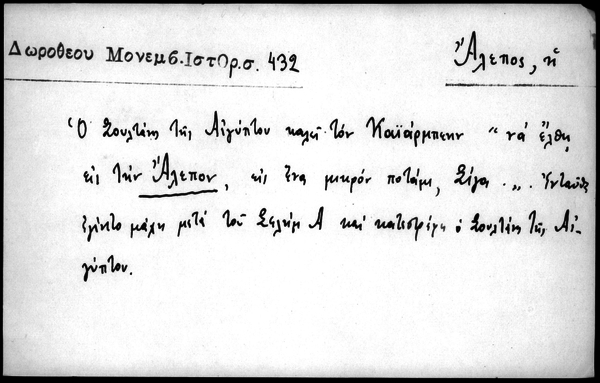 Δωροθεου Μονεμβ.ΙστΟρ.σ. 432
Ἄλεπος, ἡ
Ὁ Σουλτάνος τῆς Αἰγύπτου καλεῖ τὸν Καϊάρμπεην "νά ἔλθῃ
εἰς τὴν Ἄλεπον, εἰς ἕνα μικρόν ποτάμι, Σίγα ..". Ἐνταῦθα
ἐγίνετο μάχη μετά τοῦ Σελήμ Α καί κατεστράφη ὁ Σουλτάνος τῆς Αἰ-
γύπτου.